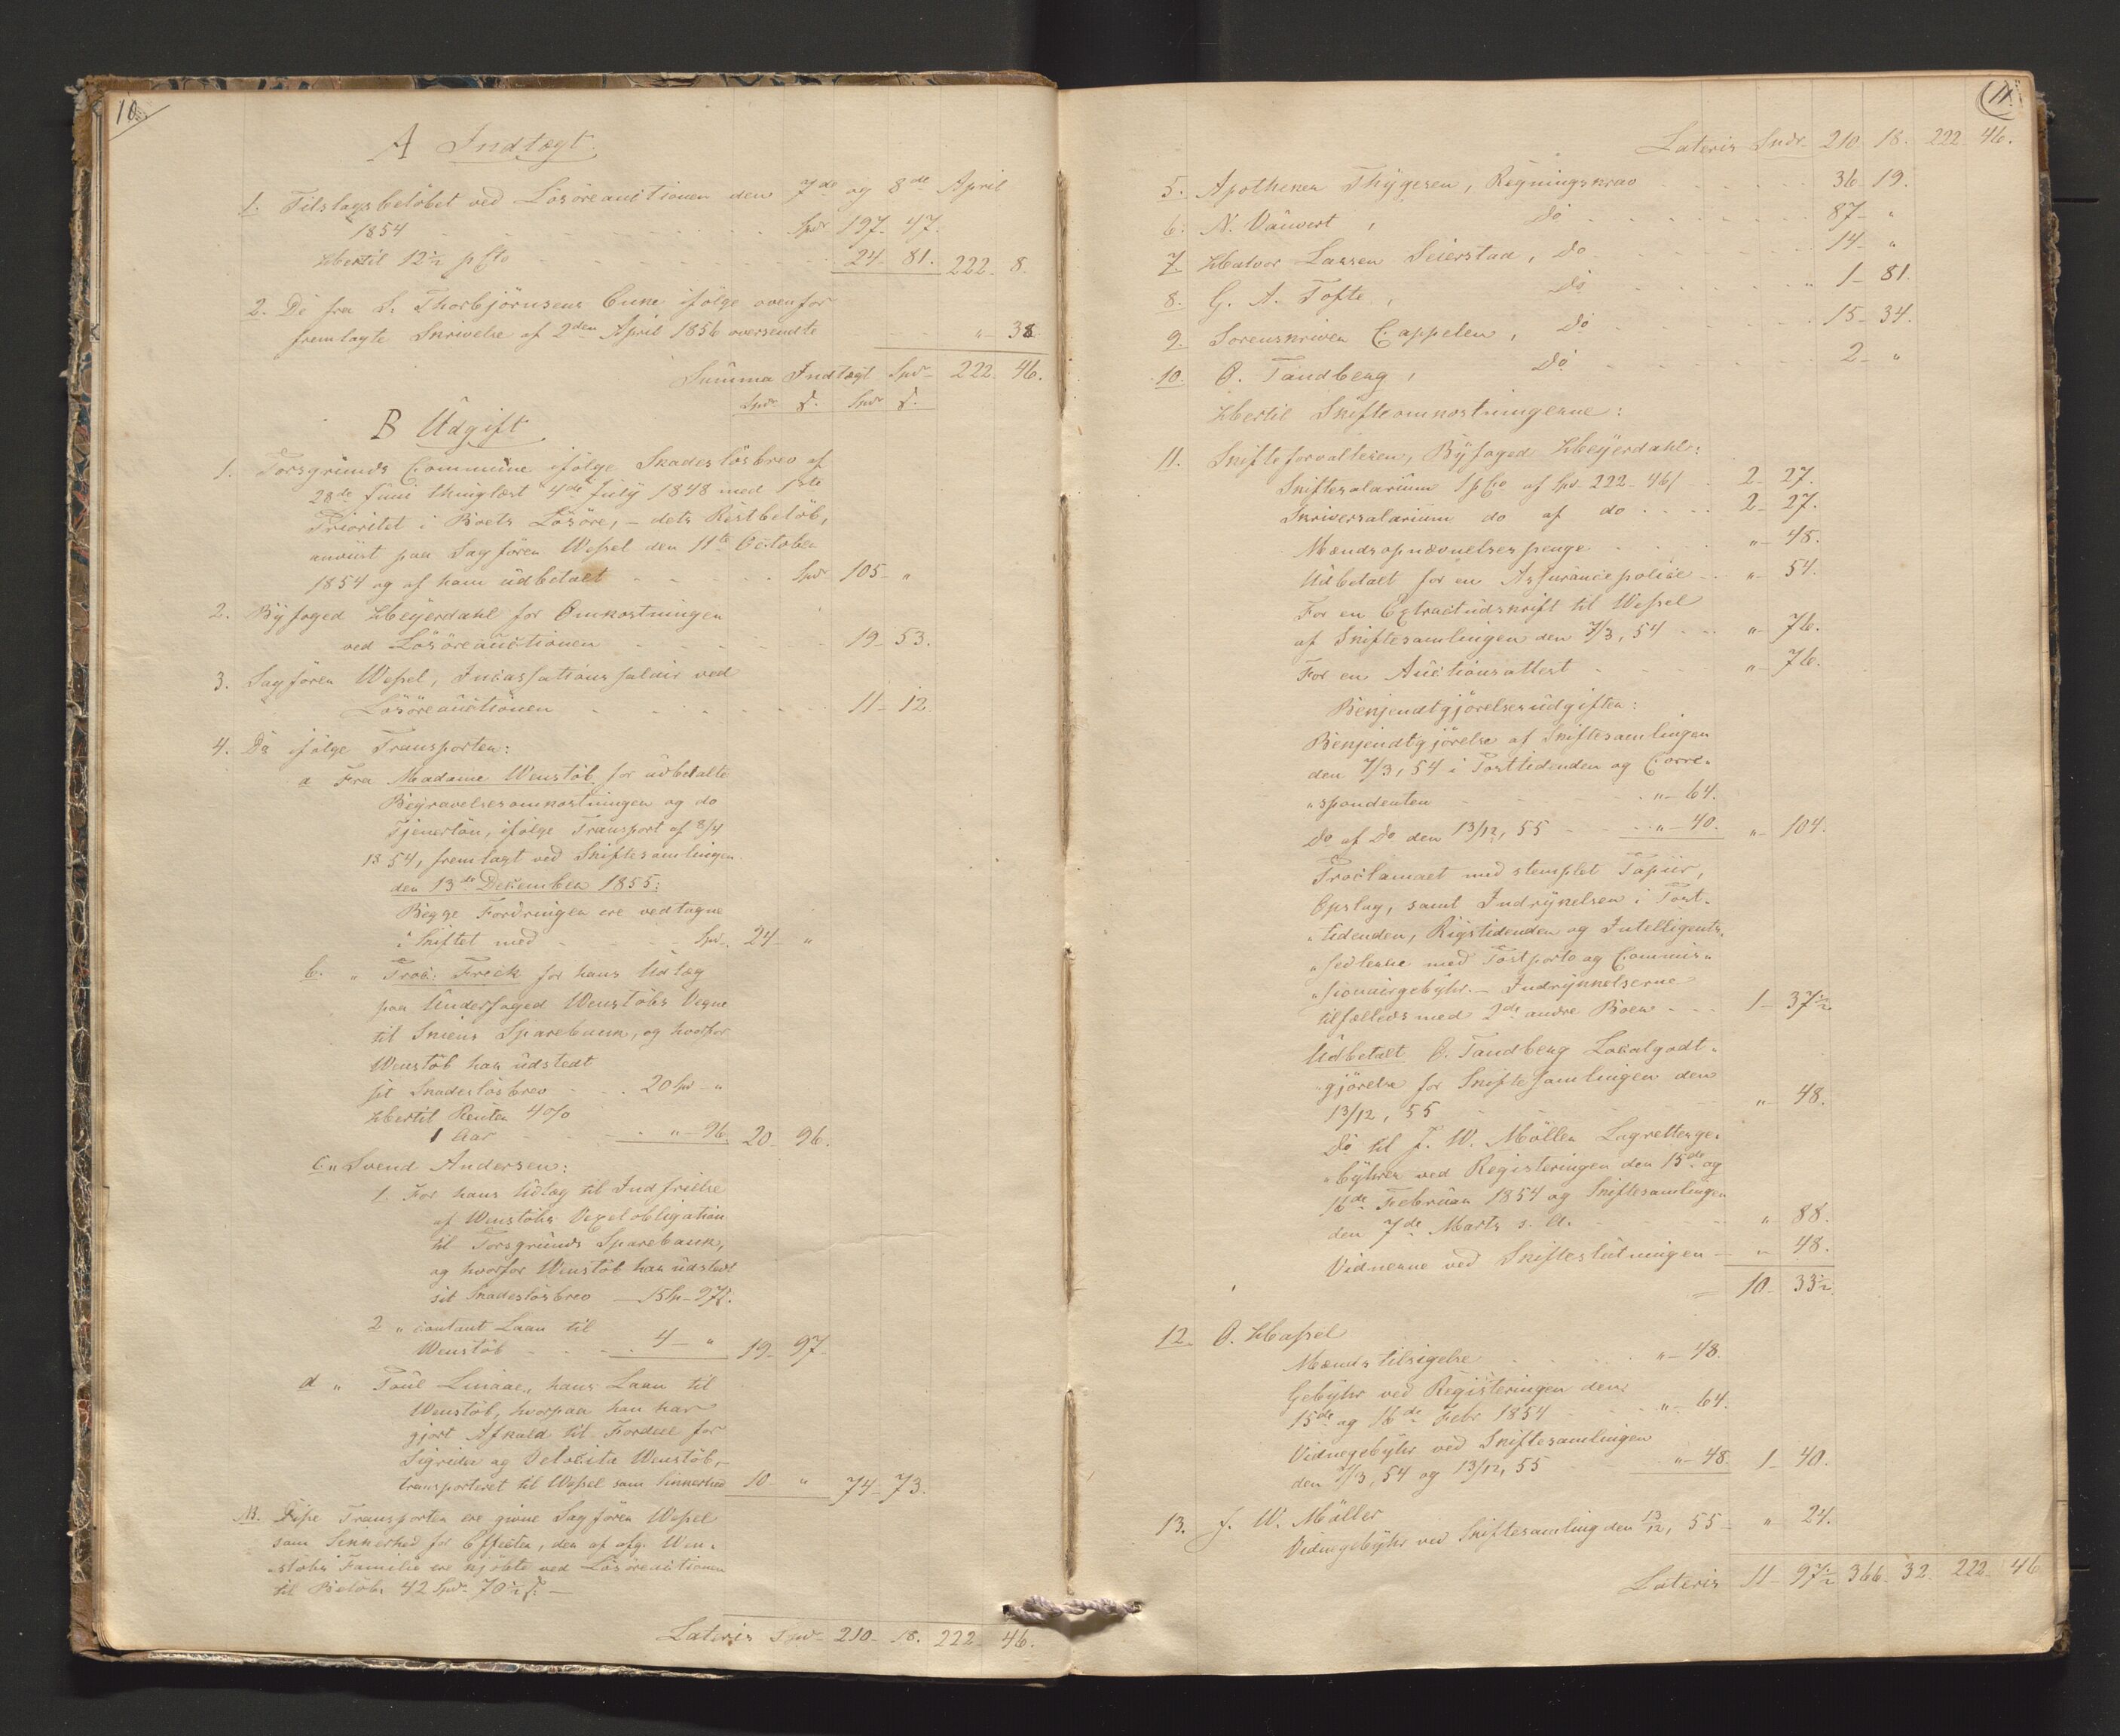 10
A Indtægt.
1. Tilslagsbeløbet ved Løsøreauctionen den 7de og 8de April
1854 Spdr 197 - 47.
Hertil 12½ pCto 24 - 81. 222 - 8.
2. De fra S. Thorbjørnsens Enke ifølge ovenfor
fremlagte Skrivelse af 2den April 1856 oversendte " - 38
Summa Indtægt Spdr 222. 46.
Spdr ß. Spdr ß.
B Udgift
1. Porsgrunds Commune ifølge Skadesløsbrev af
28de Juni thinglæst 4de July 1848 med 1ste
Prioritet i Boets Løsøre, - dets Restbeløb,
anviist paa Sagfører Wessel den 11te October
1854 og af ham udbetalt Spdr 105 - "
2. Byfoged Heyerdahl for Omkostninger
ved Løsøreauctionen 19 - 53.
3. Sagfører Wessel, Incassationssalair ved
Løsøreauctionen 11 - 12.
4. Do ifølge Transporter:
a Fra Madame Wenstøb for udbetalte
Begravelsesomkostninger og do
Tjenerløn, ifølge Transport af 8/4
1854, fremlagt ved Skiftesamlingen
den 13de December 1855:
Begge Fordringer ere vedtagne
i Skiftet med Spd. 24 - "
b. " Proc: Frick for hans Udlæg
paa Underfoged Wenstøbs Vegne
til Skiens Sparebank, og hvorfor
Wenstøb har udstedt
sit Skadesløsbrev 20 Spd - "
Hertil Renter 4%
1 Aar " - 96. 20 - 96.
c. " Svend Andersen:
1. For hans Udlæg til Indfrielse
af Wenstøbs Vexelobligation
til Porsgrunds Sparebank,
og hvorfor Wenstøb har udstedt
sit Skadesløsbrev - 15 Sp - 97ß.
2 " contant Laan til
Wenstøb 4 - " 19 - 97 -
d " Poul Lmaae, hans Laan til
Wenstøb, hvorpaa han har
gjort Afkald til Fordeel for
Sigrida og Velocita Wenstøb, -
transporteret til Wessel som Sikkerhed 10 - " 74 - 73.
NB. Disse Transporter ere givne Sagfører Wessel
som Sikkerhed for Effecter, der af afg. Wen-
støbs Familie ere kjøbte ved Løsøreauctionen
til Beløb 42 Spd. 70½ ß. -
Lateris Spdr 210 - 18. 222 - 46.
11
Lateris Spdr 210 18. 222 46.
5. Apotheker Thygesen, Regningskrav 36 19.
6. N. Vauvert, Do 87 - "
7. Halvor Lassen Seierstad, Do 14 - "
8. G. A. Tofte, Do 1 - 81.
9. Sorenskriver Cappelen, Do 15 - 34.
10. O. Tandberg, Do 2 - "
Hertil Skifteomkostningerne:
11. Skifteforvalteren, Byfoged Heyerdahl:
Skiftesalarium 1 pCto af Spd 222 - 46ß 2 - 27.
Skriversalarium do af do 2 - 27.
Mændsopnævnelsespenge " - 48.
Udbetalt for en Assurancepolice " - 54.
For en Extractudskrift til Wessel
af Skiftesamlingen den 7/3, 54 " - 76.
For en Auctionsattest " - 76.
Bekjendtgjørelsesudgifter:
Bekjendtgjørelse af Skiftesamlingen
den 7/3, 54 i Posttidenden og Corre-
"spondenten " - 64.
Do af Do den 13/12, 55 " - 40. " - 104.
Proclamaet med stemplet Papiir,
Opslag, samt Indrykkelser i Post-
"tidenden, Rigstidenden og Intelligents-
"sedlerne med Postporto og Commis-
"sionairgebyhr. - Indrykkelserne
tilfælleds med 2de andre Boer 1 - 37½
Udbetalt O. Tandberg Localgodt-
"gjørelse for Skiftesamlingen den
13/12, 55 " - 48.
Do til J. W. Møller Lagrettesge-
"byhrer ved Registeringen den 15de og
16de Februar 1854 og Skiftesamlingen
den 7de Marts s. A. " 88.
Vidnerne ved Skifteslutningen - " - 48.
10 - 33½
12. O. Hassel
Mændstilsigelse " - 48.
Gebyhr ved Registeringen den
15de og 16de Febr 1854 " - 64.
Vidnegebyhr ved Skiftesamlingen
den 7/3, 54 og 13/12, 55 " - 48. 1 - 40.
13. J. W. Møller
Vidnegebyhr ved Skiftesamling den 13/12, 55 - " 24.
Lateris 11 - 97½ 366 - 32. 222 - 46